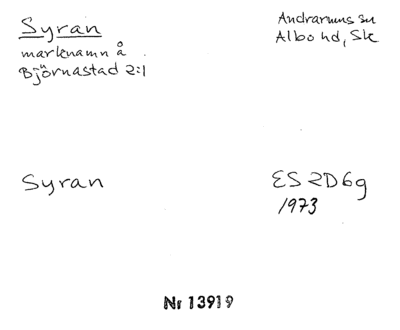 Syran
marknamn å
Björnastad 2:1
Andrarums sn
Albo hd, Sk
Syran
ES 2D6g
1973
Nr 13919